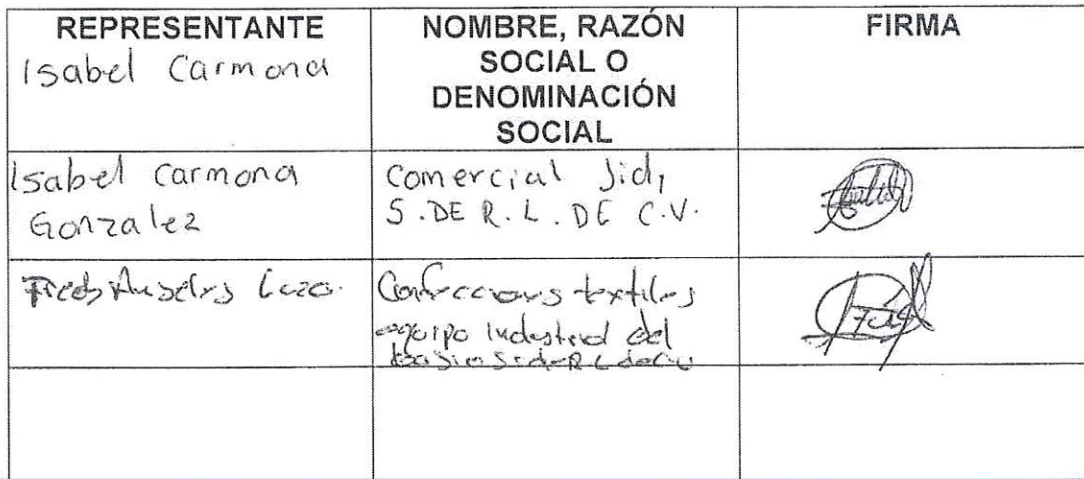 REPRESENTANTE
Isabel Carmona
NOMBRE, RAZÓN
SOCIAL O
DENOMINACIÓN
SOCIAL
FIRMA
Isabel Carmona
Gonzalez
Comercial Jidi,
S.DE R.L. DE C.V.
textiles
equipo industrial del